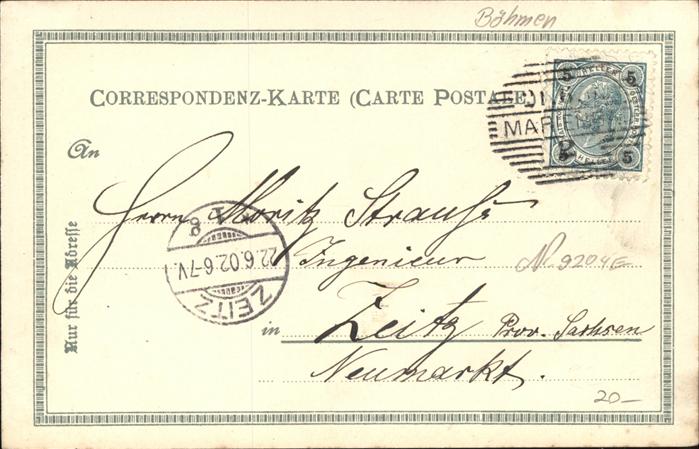 Böhmen
CORRESPONDENZ-KARTE (CARTE POSTALE)
5 HELLER 5
MAR
5 HELLER 5
An
Herrn Moritz Strauss
Ingenieur
N 9204E
in Zeitz Prov. Sachsen
Neumarkt.
20–
Nur für die Adresse
* 1 8
22.6.02.6-7V.
ZEITZ